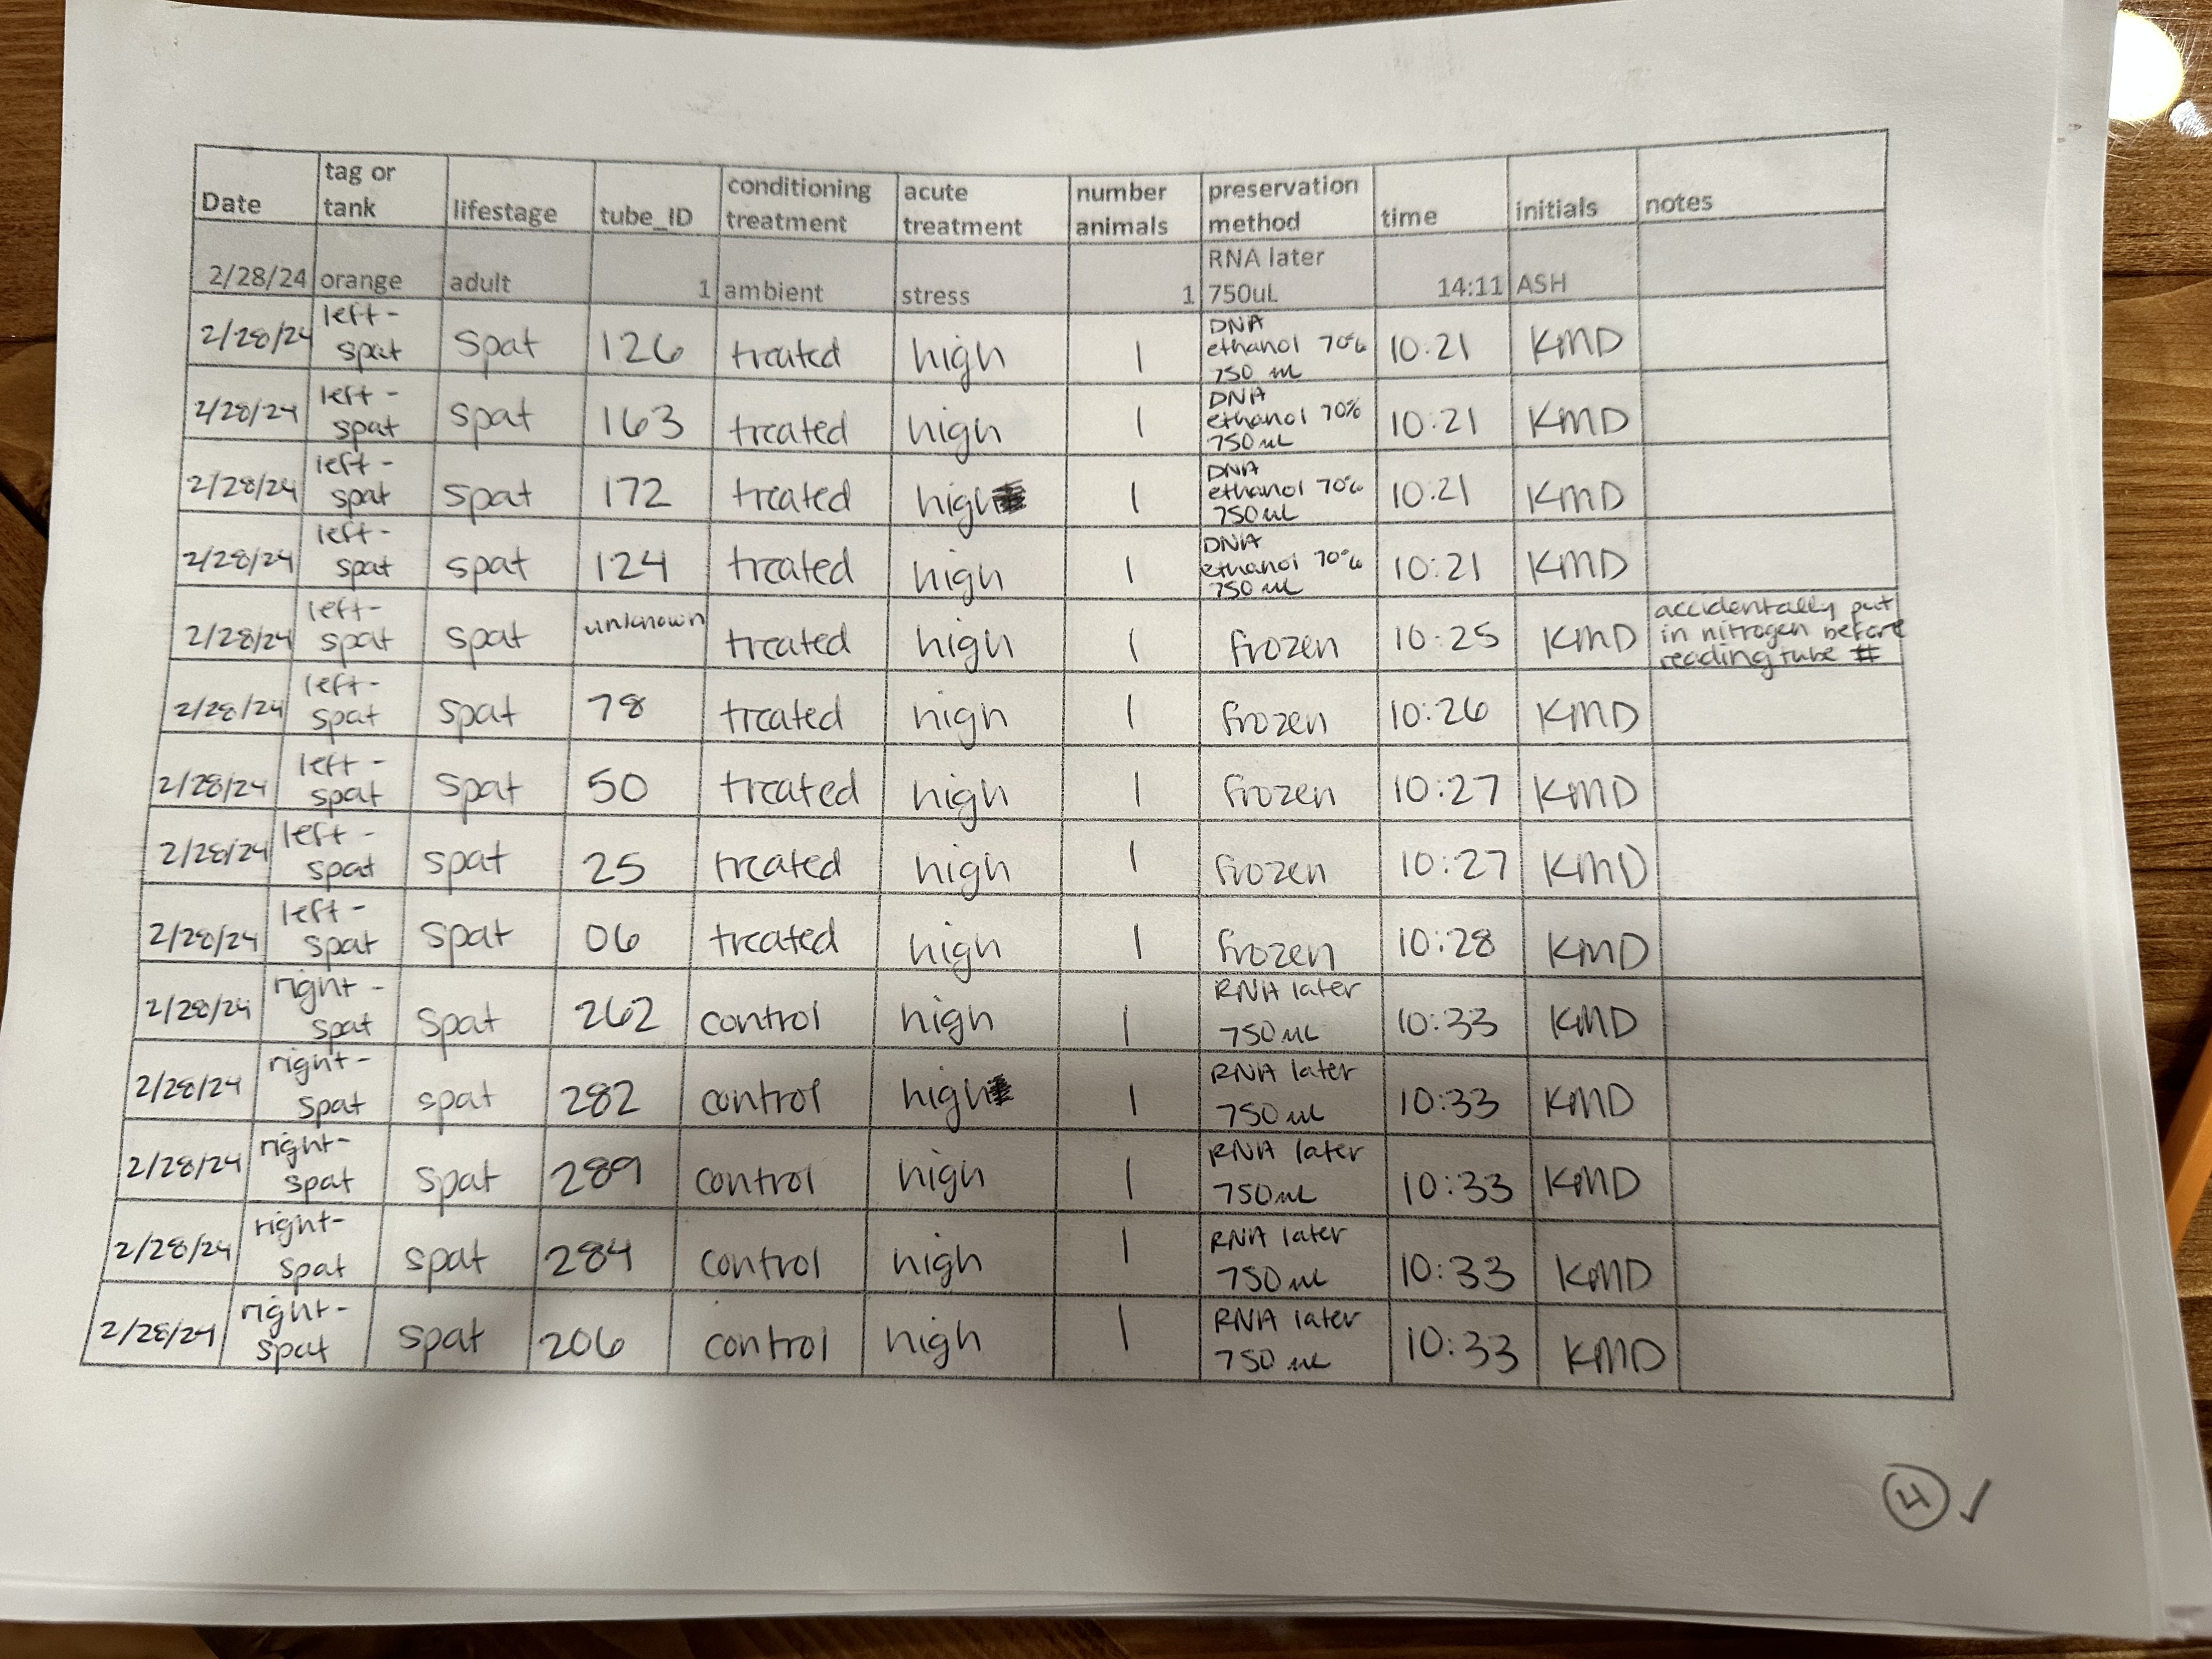 Date tag or tank lifestage tube_ID conditioning treatment acute treatment number animals preservation method time initials notes
2/28/24 orange adult 1 ambient stress 1 RNA later 750uL 14:11 ASH
2/28/24 left - spat spat 126 treated high 1 DNA ethanol 70% 750 uL 10:21 KMD
2/28/24 left - spat spat 163 treated high 1 DNA ethanol 70% 750 uL 10:21 KMD
2/28/24 left - spat spat 172 treated high 1 DNA ethanol 70% 750 uL 10:21 KMD
2/28/24 left - spat spat 124 treated high 1 DNA ethanol 70% 750 uL 10:21 KMD
2/28/24 left - spat spat unknown treated high 1 frozen 10:25 KMD accidentally put in nitrogen before reading tube #
2/28/24 left - spat spat 78 treated high 1 frozen 10:26 KMD
2/28/24 left - spat spat 50 treated high 1 frozen 10:27 KMD
2/28/24 left - spat spat 25 treated high 1 frozen 10:27 KMD
2/28/24 left - spat spat 06 treated high 1 frozen 10:28 KMD
2/28/24 right - spat spat 262 control high 1 RNA later 750 uL 10:33 KMD
2/28/24 right - spat spat 282 control high 1 RNA later 750 uL 10:33 KMD
2/28/24 right - spat spat 289 control high 1 RNA later 750 uL 10:33 KMD
2/28/24 right - spat spat 284 control high 1 RNA later 750 uL 10:33 KMD
2/28/24 right - spat spat 206 control high 1 RNA later 750 uL 10:33 KMD
4